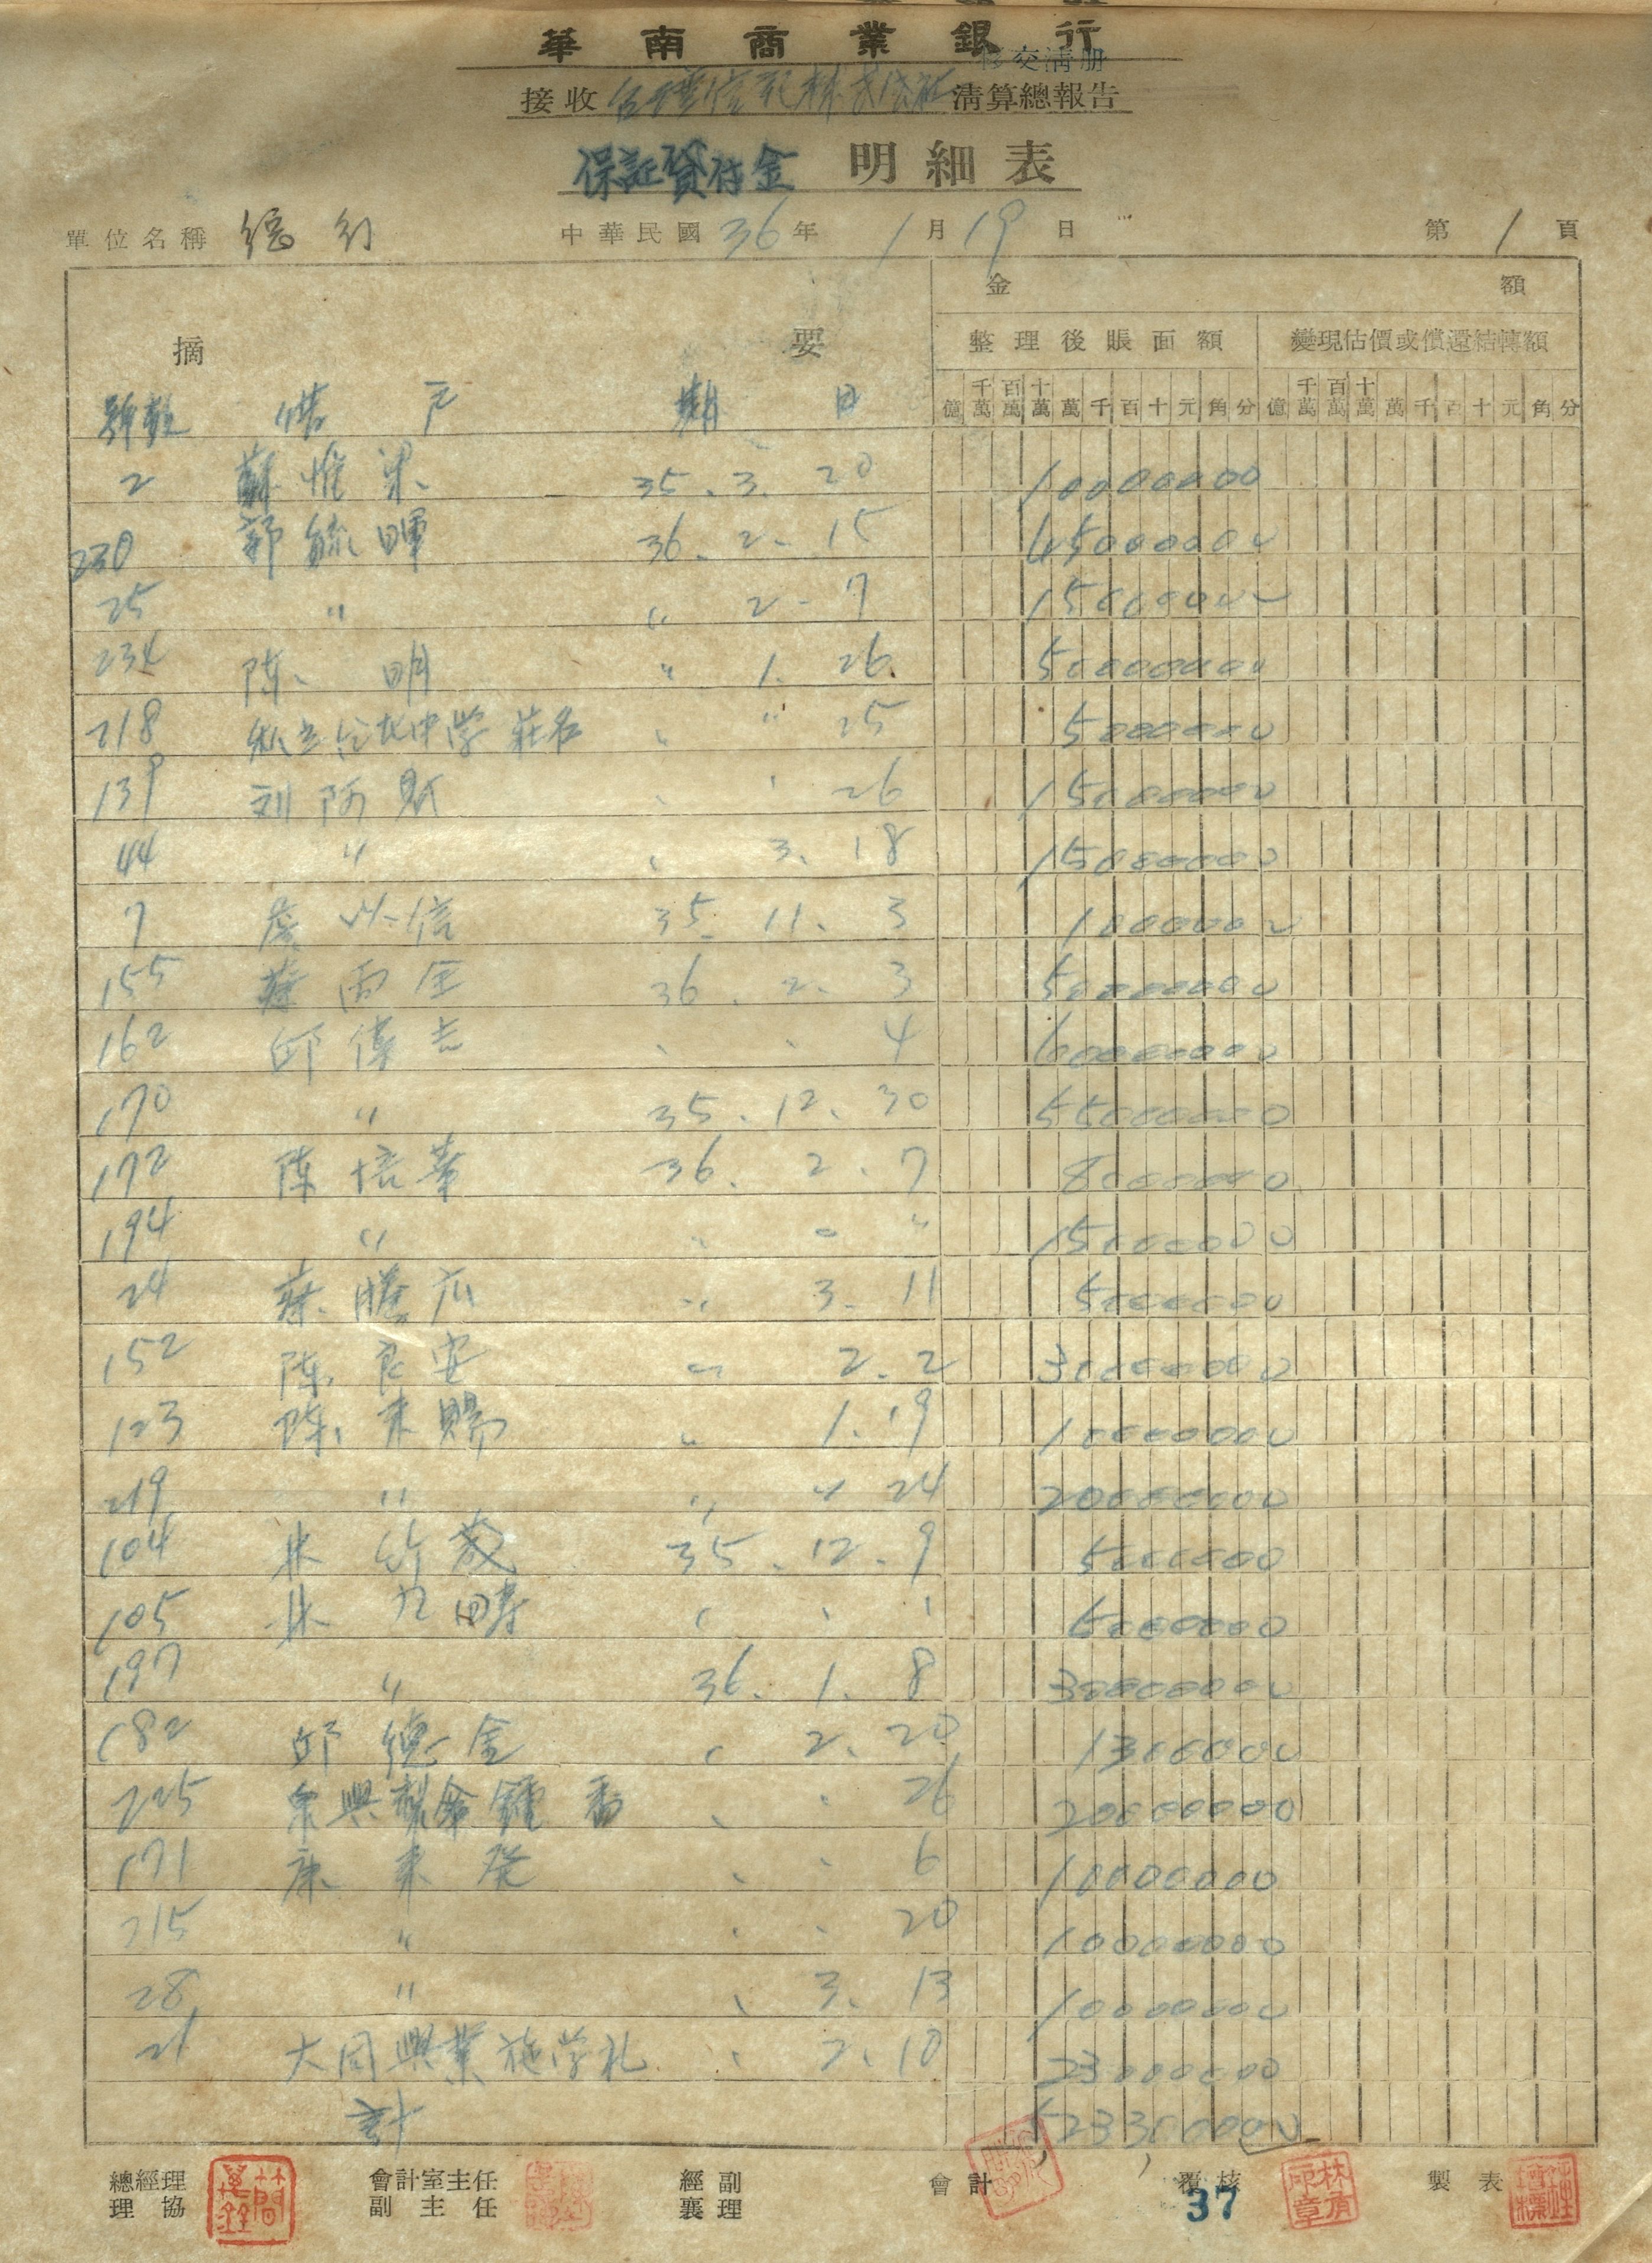 華南商業銀行
移交清册
接收台灣信託株式会社清算總報告
保証貸付金 明細表
單位名稱 總行 中華民國36年1月19日 第1頁
摘要 金額
整理後賬面額 變現估價或償還結轉額
億千萬百萬十萬萬千百十元角分 億千萬百萬十萬萬千百十元角分
號數 借戶 期日
2 蘇惟梁 35.3.20 10000000
230 郭毓暉 36.2.15 45000000
25 〃 〃 2.7 15000000
234 陈明 〃 1.26 50000000
218 私立台北中学 莊名 〃 〃 25 5000000
139 刘阿財 〃 〃 26 15000000
44 〃 〃 3.18 15000000
7 詹以信 35.11.3 1000000
155 蔡雨全 36.2.3 50000000
162 邱傳吉 〃 〃 4 60000000
170 〃 35.12.30 55000000
172 陈培華 36.2.7 8000000
194 〃 〃 〃 〃 15000000
24 蔡勝 〃 3.11 5000000
152 陈良安 〃 2.2 30000000
123 陈来賜 〃 1.19 10000000
219 〃 〃 〃 24 20000000
104 林竹茂 35.12.9 5000000
105 林九疇 〃 〃 〃 5000000
197 〃 36.1.8 30000000
182 邱德金 〃 2.20 1300000
225 泉興製傘 鍾番 〃 〃 26 20000000
171 康来發 〃 〃 6 10000000
215 〃 〃 〃 20 10000000
28 〃 〃 3.13 10000000
26 大同興業 施学礼 〃 2.10 23000000
計 523300000
總經理 會計室主任 經副 會計 覆核 製表
理協 副主任 襄理
37